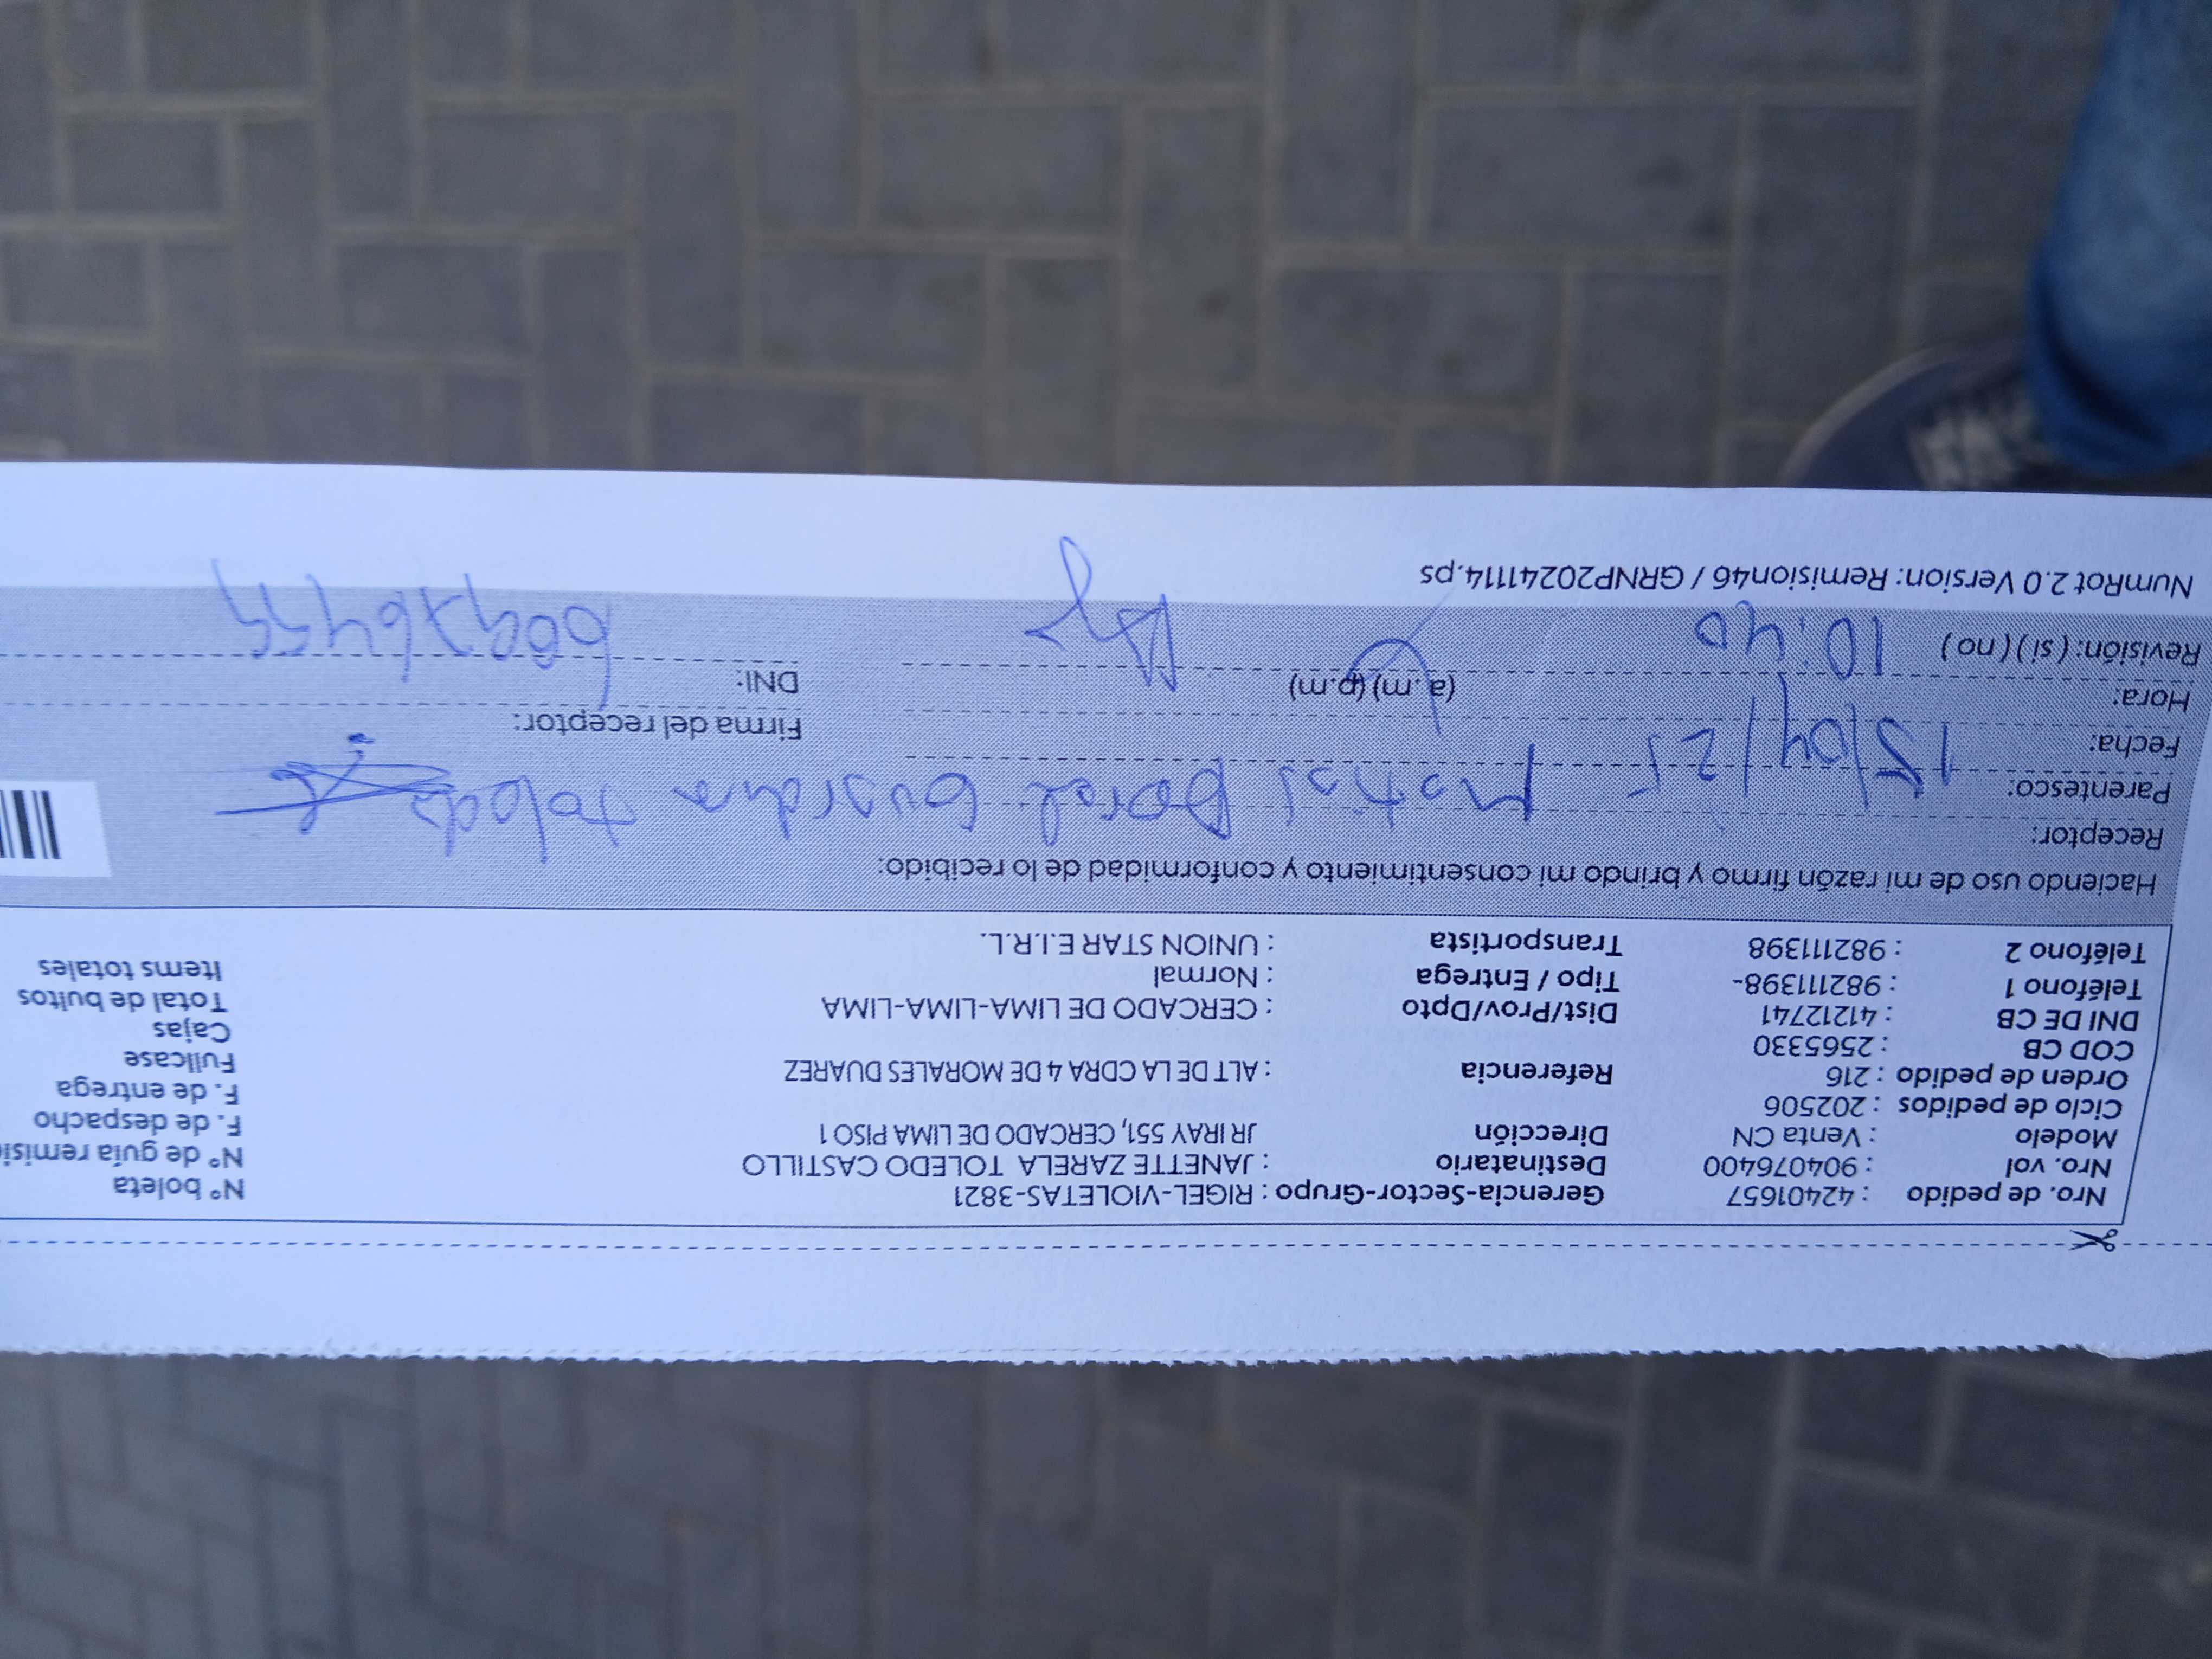 Nro. de pedido : 42401657 Gerencia-Sector-Grupo : RIGEL-VIOLETAS-3821 N° boleta
Nro. vol : 904076400 Destinatario : JANETTE ZARELA TOLEDO CASTILLO N° de guía
Modelo : Venta CN Dirección JR IRAY 551, CERCADO DE LIMA PISO 1 F. de despacho
Ciclo de pedidos : 202506 F. de entrega
Orden de pedido : 216 Referencia : ALT DE LA CDRA 4 DE MORALES DUAREZ Fullcase
COD CB : 2565330 Cajas
DNI DE CB : 41212741 Dist/Prov/Dpto : CERCADO DE LIMA-LIMA-LIMA Total de bultos
Teléfono 1 : 982111398- Tipo / Entrega : Normal Items totales
Teléfono 2 : 982111398 Transportista : UNION STAR E.I.R.L.
Haciendo uso de mi razón firmo y brindo mi consentimiento y conformidad de lo recibido:
Receptor: Matias
Parentesco: toledo
Fecha: 15/04/25 Firma del receptor:
Hora: 10:40 (a.m) (p.m) DNI:
Revisión: ( si ) ( no )
NumRot 2.0 Version: Remision46 / GRNP20241114.ps